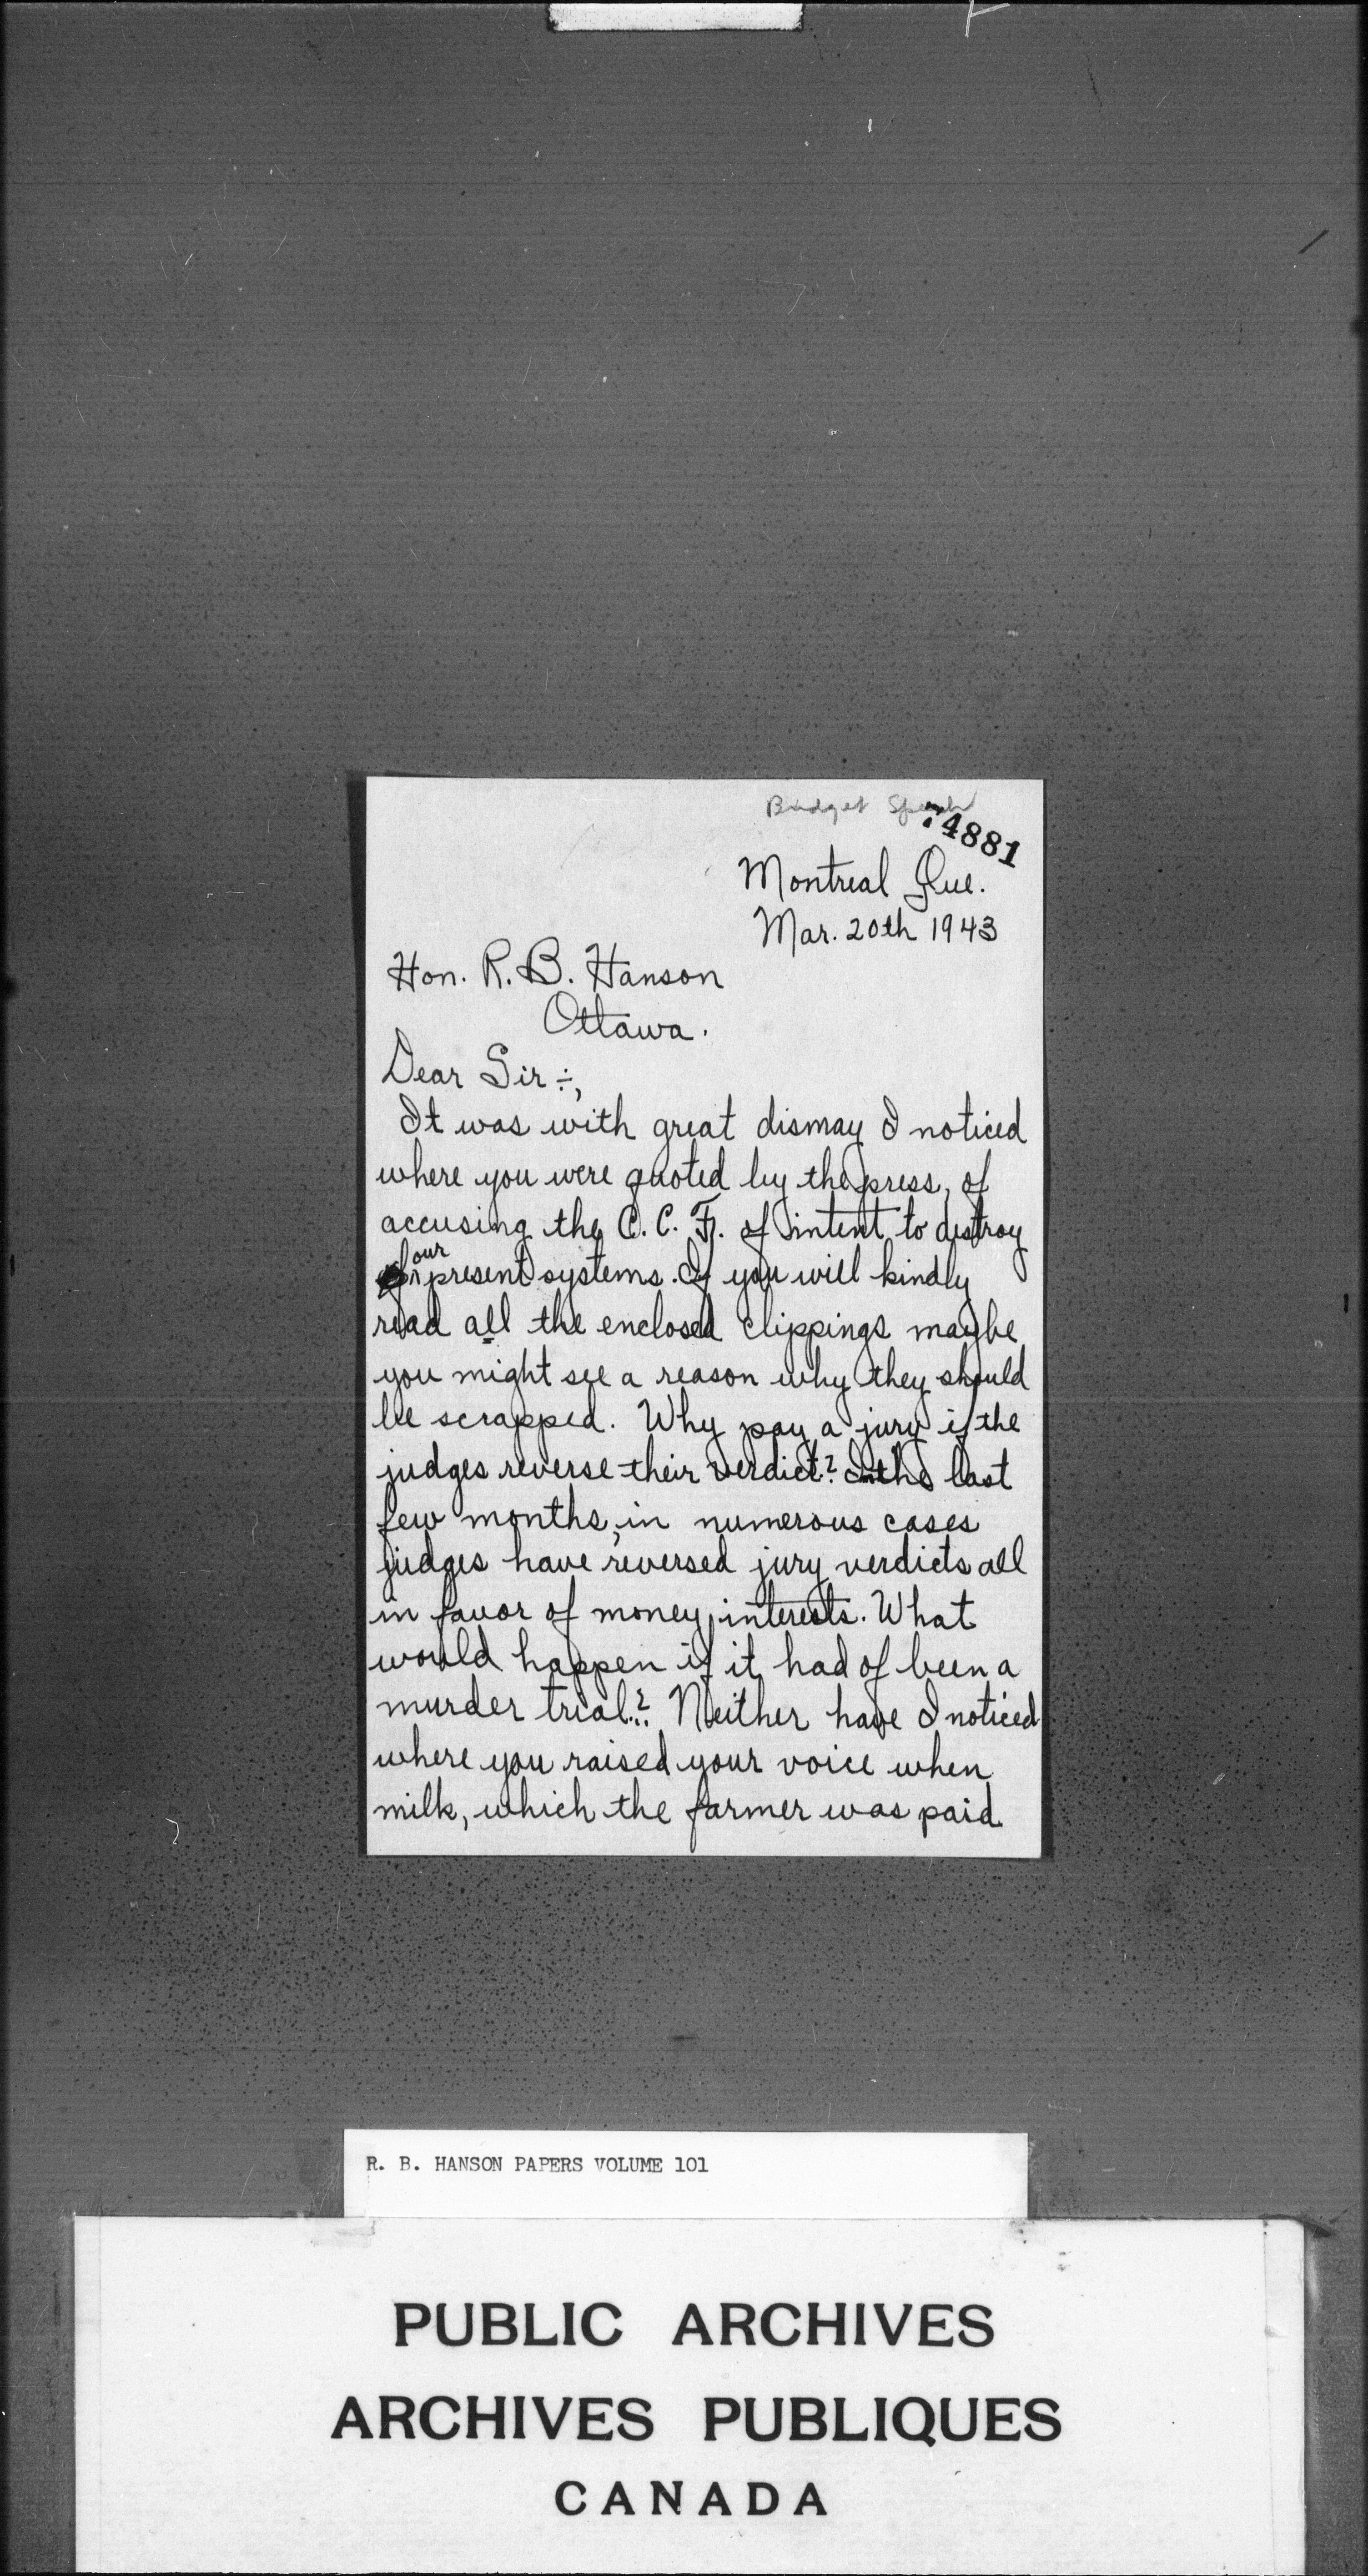 Budget Speech
74881
Montreal Que.
Mar. 20th 1943
Hon. R. B. Hanson
Ottawa.
Dear Sir :-,
It was with great dismay I noticed
where you were quoted by the press, of
accusing the C. C. F. of intent to destroy
our
present systems. If you will kindly
read all the enclosed clippings maybe
you might see a reason why they should
be scrapped. Why pay a jury if the
judges reverse their verdict? In the last
few months, in numerous cases
judges have reversed jury verdicts all
in favor of money interests. What
would happen if it had of been a
murder trial..? Neither have I noticed
where you raised your voice when
milk, which the farmer was paid
R. B. HANSON PAPERS VOLUME 101
PUBLIC ARCHIVES
ARCHIVES PUBLIQUES
CANADA